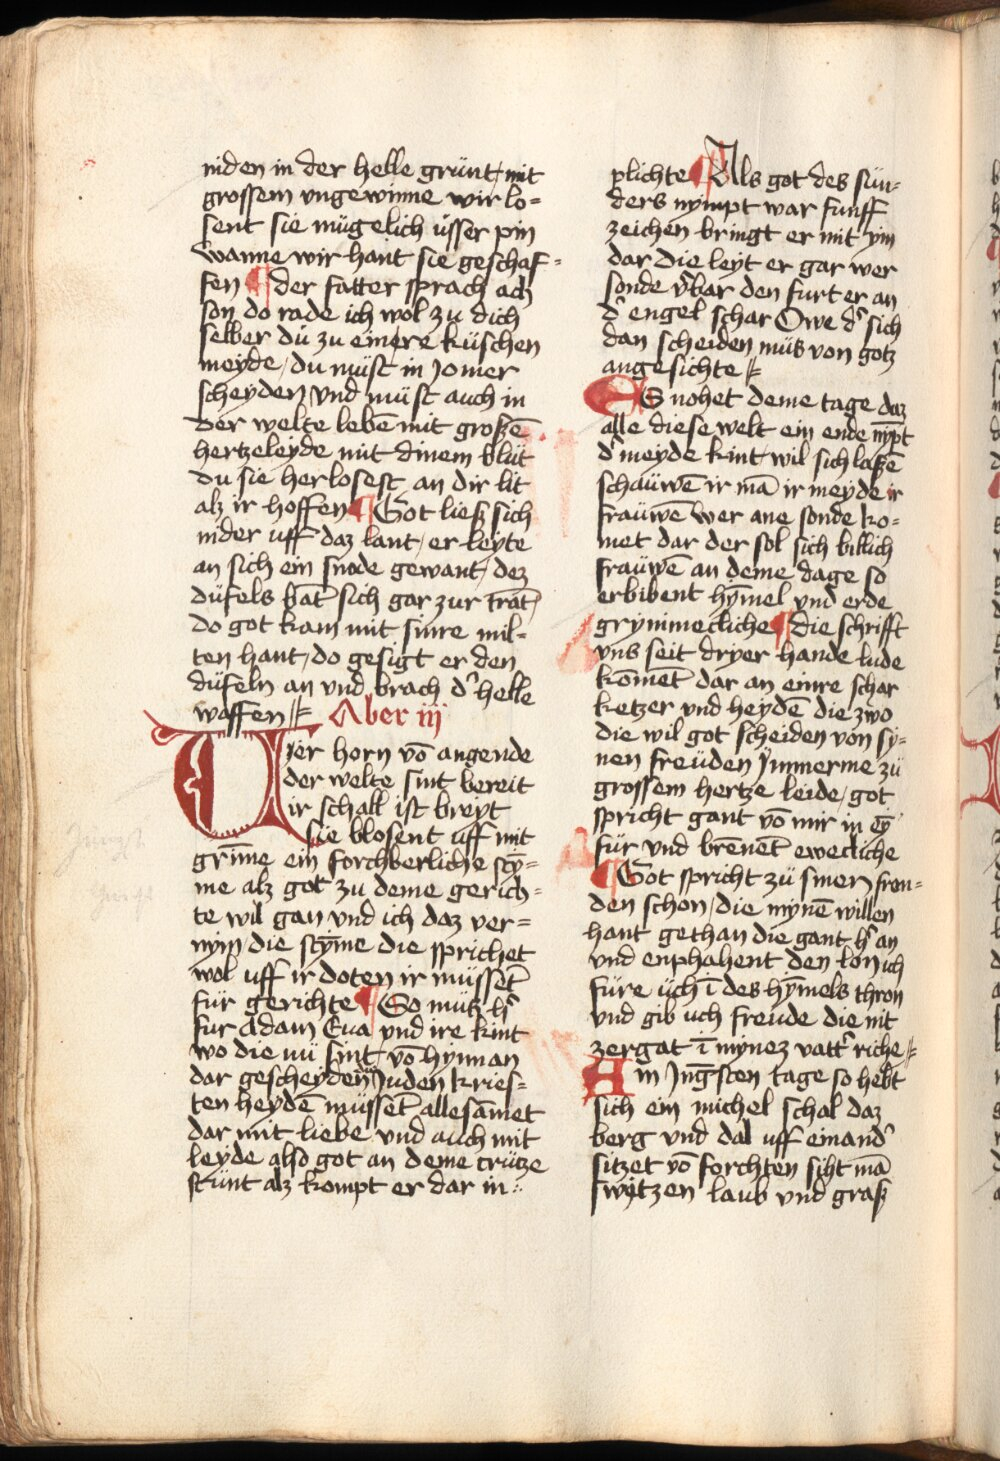 niden in der helle grünt, mit
grossem ungewinne wir lo=
sent sie mügelich üsser pin
wanne wir hant sie geschaf=
fen ¶ der fatter sprach ach
son do rade ich wol zu dich
selber dü zu einere küschen
meyde, du müst in Jomer
scheyden und müst auch in
der welte lebē mit großē
hertzeleyde mit dinem blüt
du sie herlosest an dir lit
alz ir hoffen ¶ Got ließ sich
nider uff daz lant, er leyte
an sich ein snode gewant, dez
düfels hat sich gar zur trat,
do got kam mit sinre mil=
ten hant, do gesigt er den
düfeln an und brach d' helle
waffen // Aber iij
Uier horn vō angende
der welte sint bereit
ir schall ist breyt
sie blosent uff mit
grīme ein forchberliche sty̅=
me alz got zu deme gerich=
te wil gan und ich daz ver=
nym, die sty̅me die sprichet
wol uff ir doten ir müsset̄
für gerichte ¶ So mutz h'
fur Adam Eua und ire kint
wo die nü sint, vō hynnan
dar gescheyden Juden kries=
ten heydē müsset̄ allesāmet
dar mit liebe und auch mit
leyde also got an deme crütze
stünt alz kompt er dar in
plichte ¶ Als got des sün=
ders nympt war funff
zeichen bringt er mit ym
dar die leyt er gar wer
sonde v'bar den furt er an
d' engel schar Owe d' sich
dan scheiden müs von gotz
angesichte //
ES nohet deme tage daz
alle diese welt ein ende nȳpt
d' meyde kint, wil sich laßē
schäuwē ir mā ir meyde ir
frauwē wer ane sonde ko=
met dar der sol sich billich
frauwē an deme dage so
erbibent hȳmel und erde
grymmecliche ¶ die schrifft
uns seit dryer hande lude
kōmet̄ dar an einre schar
ketzer und heydē die zwo
die wil got scheiden von sy=
nen freüden ymmerme zü
grossem hertze leide, got
spricht gant vō mir in ey̅
für und brēnet̄ ewecliche
¶ Got spricht zü sinen fren=
den schon, die mynē willen
hant gethan die gant h' an
und enphahent den lon ich
füre üch ī des hȳmels thron
und gib uch freude die nit
zergat ī mynez vatt' riche //
Am Jng̅sten tage so hebt
sich ein michel schal daz
berg und dal uff einand'
sitzet vō forchten siht mā
switzen laub und graß